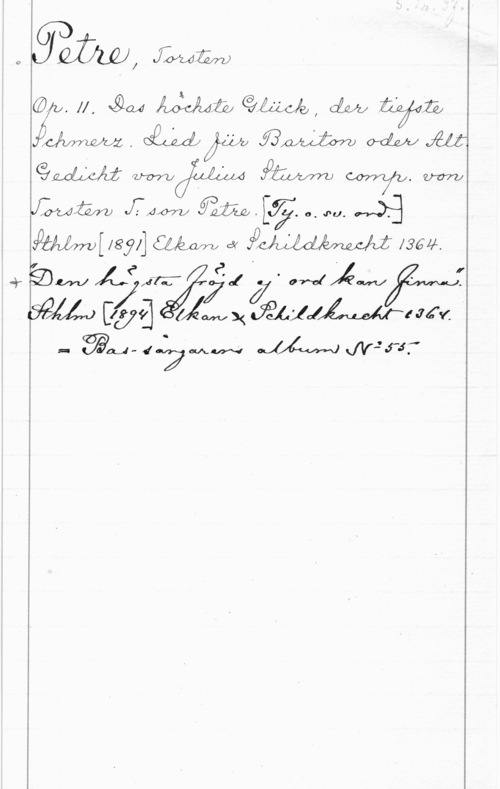 Petre, Torsten
Op. 11. Das höchste Glück, der tiefste
Schmerz. Lied für Bariton oder Alt.
Gedicht von Julius Sturm comp. von
Torsten T:son Petre. [Ty. o. sv. ord.]
Sthlm [1891] Elkan & Schildknecht 1364.
+ "Den högsta fröjd ej ord kan finna".
Sthlm [1894] Elkan & Schildknecht 1364.
= Bas-sångarens album Nº 55.